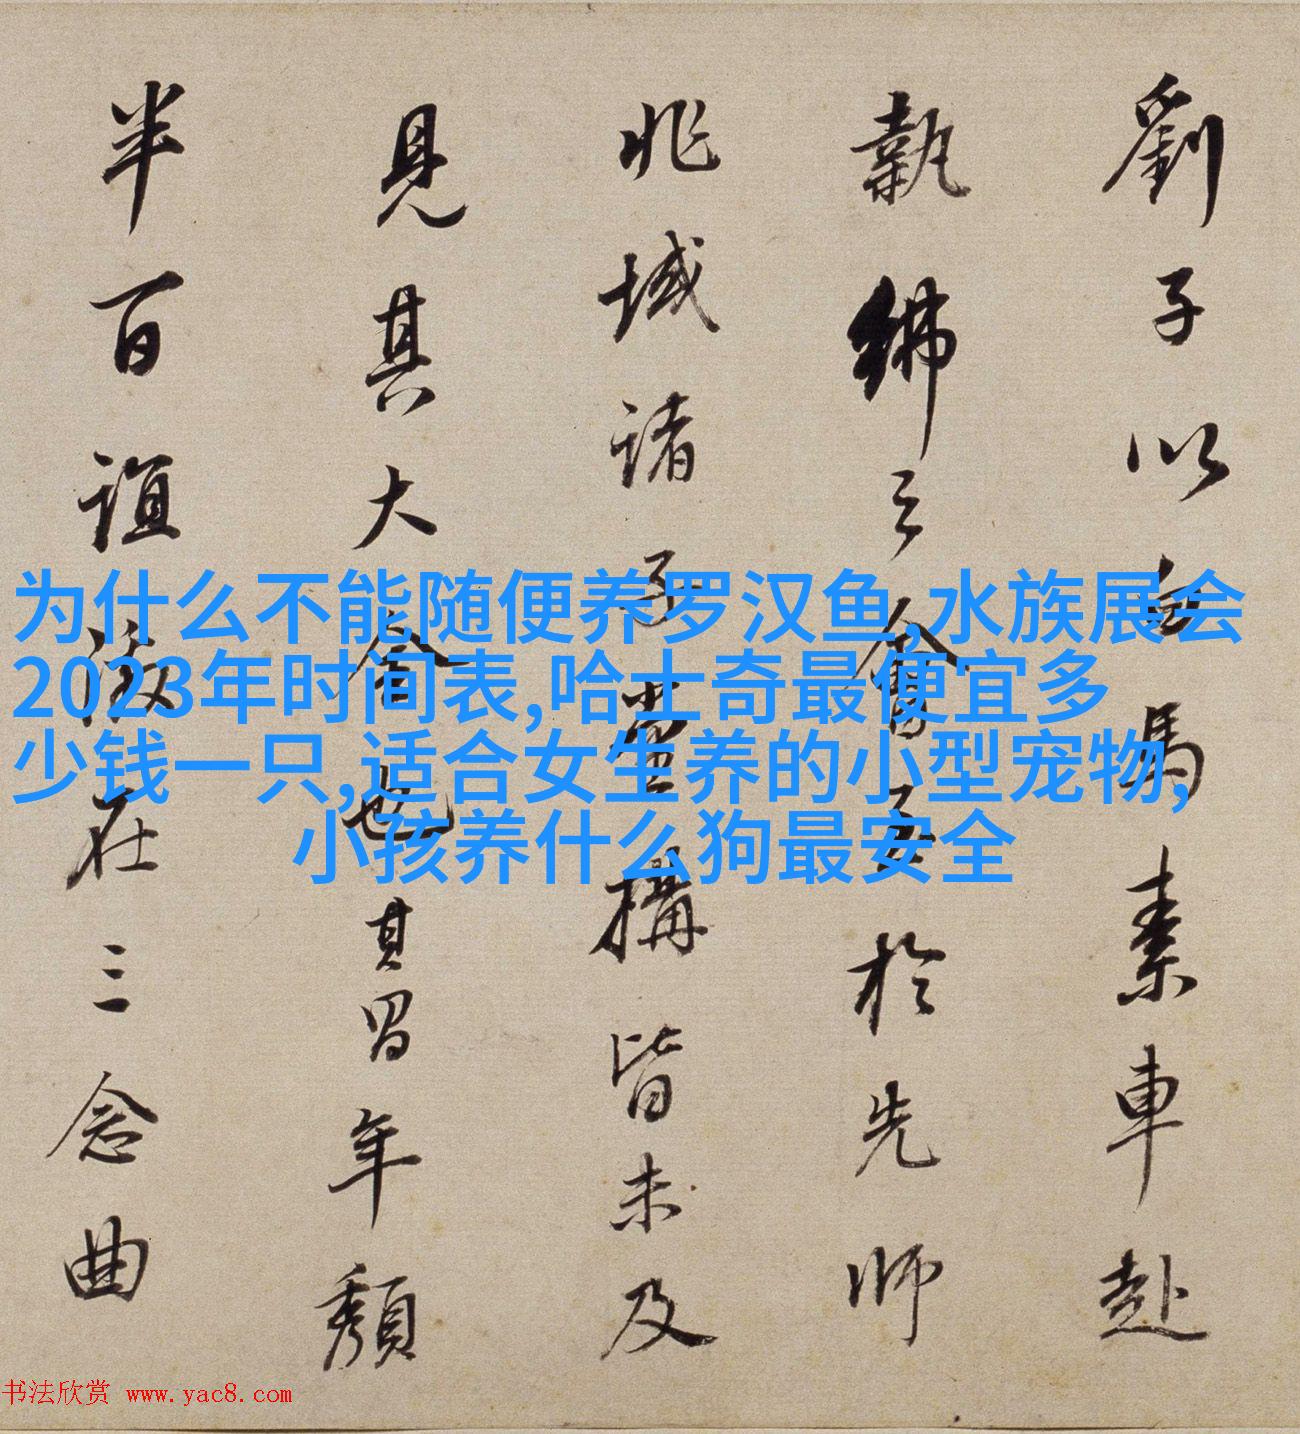 劉子以白馬素車赴
執紼之會於先師
兆域諸子堂構皆未及
見其大也其年頹
半百誼在三念曲
为什么不能随便养罗汉鱼,水族展会
2023年时间表,哈士奇最便宜多
少钱一只,适合女生养的小型宠物,
小孩养什么狗最安全
书法欣赏 www.yac8.com